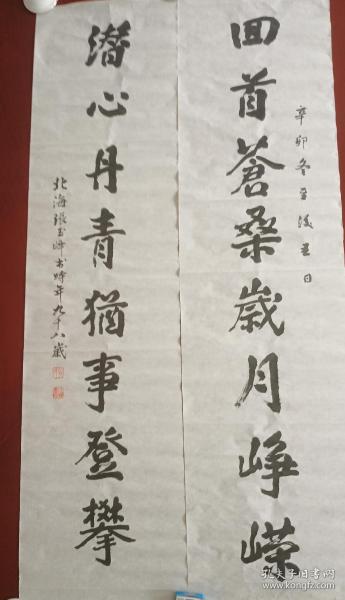 回首蒼桑歲月崢嶸
辛卯冬至後三日
潛心丹青猶事登攀
北海張玉峰書時年九十八歲
孔夫子旧书网